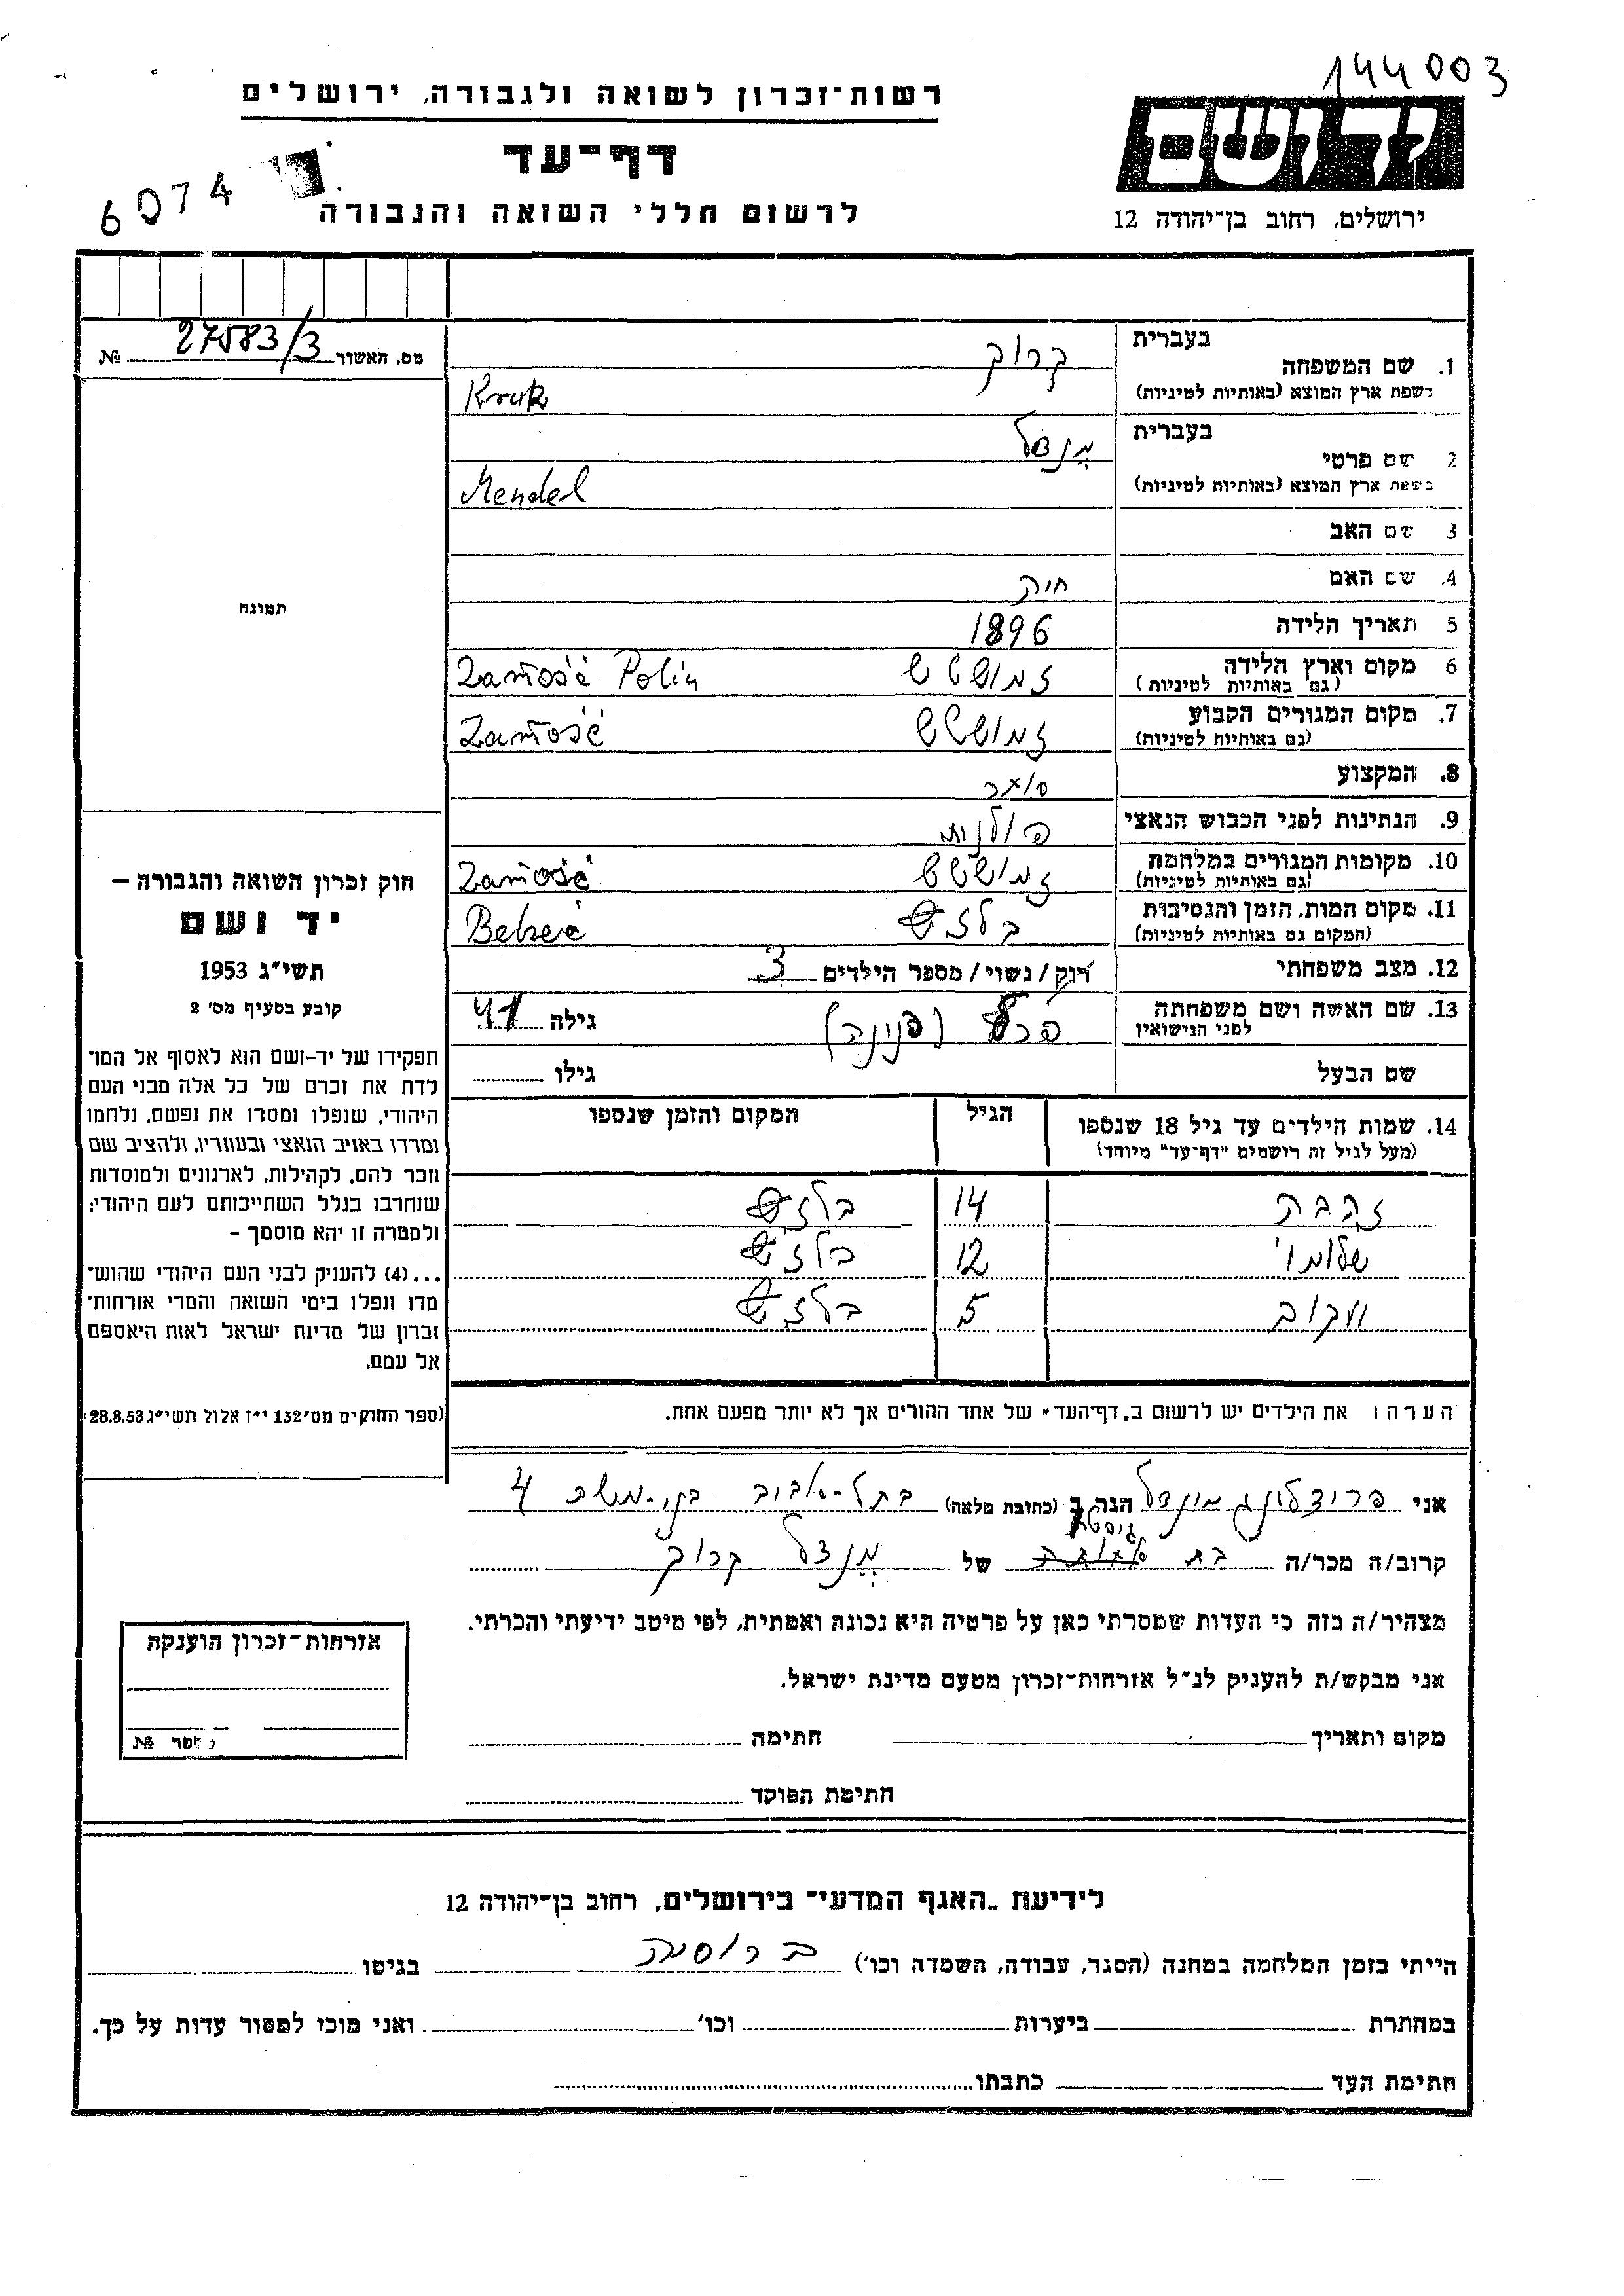 144003
רשות־זכרון לשואה ולגבורה, ירושלים
יד ושם
דף־עד
6074
לרשום חללי השואה והגבורה
ירושלים, רחוב בן־יהודה 12
מס. האשור 27583/3 №
תמונה
בעברית
1. שם המשפחה קרוק
בשפת ארץ המוצא (באותיות לטיניות) Kruk
בעברית
2 שם פרטי מנדל
בשפת ארץ המוצא (באותיות לטיניות) Mendel
3 שם האב
4. שם האם חיה
5 תאריך הלידה 1896
6 מקום וארץ הלידה Zamość Polin
(גם באותיות לטיניות)
7. מקום המגורים הקבוע Zamość
(גם באותיות לטיניות)
8. המקצוע סוחר
9. הנתינות לפני הכבוש הנאצי פולנית
10. מקומות המגורים במלחמה Zamość
(גם באותיות לטיניות)
11. מקום המות, הזמן והנסיבות
(המקום גם באותיות לטיניות)
12. מצב משפחתי רוק/נשוי/מספר הילדים 3
13. שם האשה ושם משפחתה (פנינה) גילה 41
לפני הנישואין
שם הבעל גילו
14. שמות הילדים עד גיל 18 שנספו הגיל המקום והזמן שנספו
(מעל לגיל זה רושמים "דף־עד" מיוחד)
14
12
יעקוב 5
הערה: את הילדים יש לרשום ב„דף־העד" של אחד ההורים אך לא יותר מפעם אחת.
חוק זכרון השואה והגבורה –
יד ושם
תשי"ג 1953
קובע בסעיף מס' 2
תפקידו של יד-ושם הוא לאסוף אל המו־
לדת את זכרם של כל אלה מבני העם
היהודי, שנפלו ומסרו את נפשם, נלחמו
ומרדו באויב הנאצי ובעוזריו, ולהציב שם
וזכר להם, לקהילות, לארגונים ולמוסדות
שנחרבו בגלל השתייכותם לעם היהודי;
ולמטרה זו יהא מוסמך –
...(4) להעניק לבני העם היהודי שהוש־
מדו ונפלו בימי השואה והמרי אזרחות־
זכרון של מדינת ישראל לאות היאספם
אל עמם.
(ספר החוקים מס' 132 י"ז אלול תשי"ג 28.8.53)
אני הגר ב (כתובת מלאה) בתל-אביב 4
קרוב/ה מכר/ה של מנדל קרוק
מצהיר/ה בזה כי העדות שמסרתי כאן על פרטיה היא נכונה ואמתית, לפי מיטב ידיעתי והכרתי.
אני מבקש/ת להעניק לנ"ל אזרחות־זכרון מטעם מדינת ישראל.
מקום ותאריך חתימה
חתימת הפוקד
אזרחות־זכרון הוענקה
מספר №
לידיעת „האגף המדעי" בירושלים, רחוב בן־יהודה 12
הייתי בזמן המלחמה במחנה (הסגר, עבודה, השמדה וכו') ברוסיה בגיטו
במחתרת ביערות וכו' ואני מוכן למסור עדות על כך.
חתימת העד כתבתו